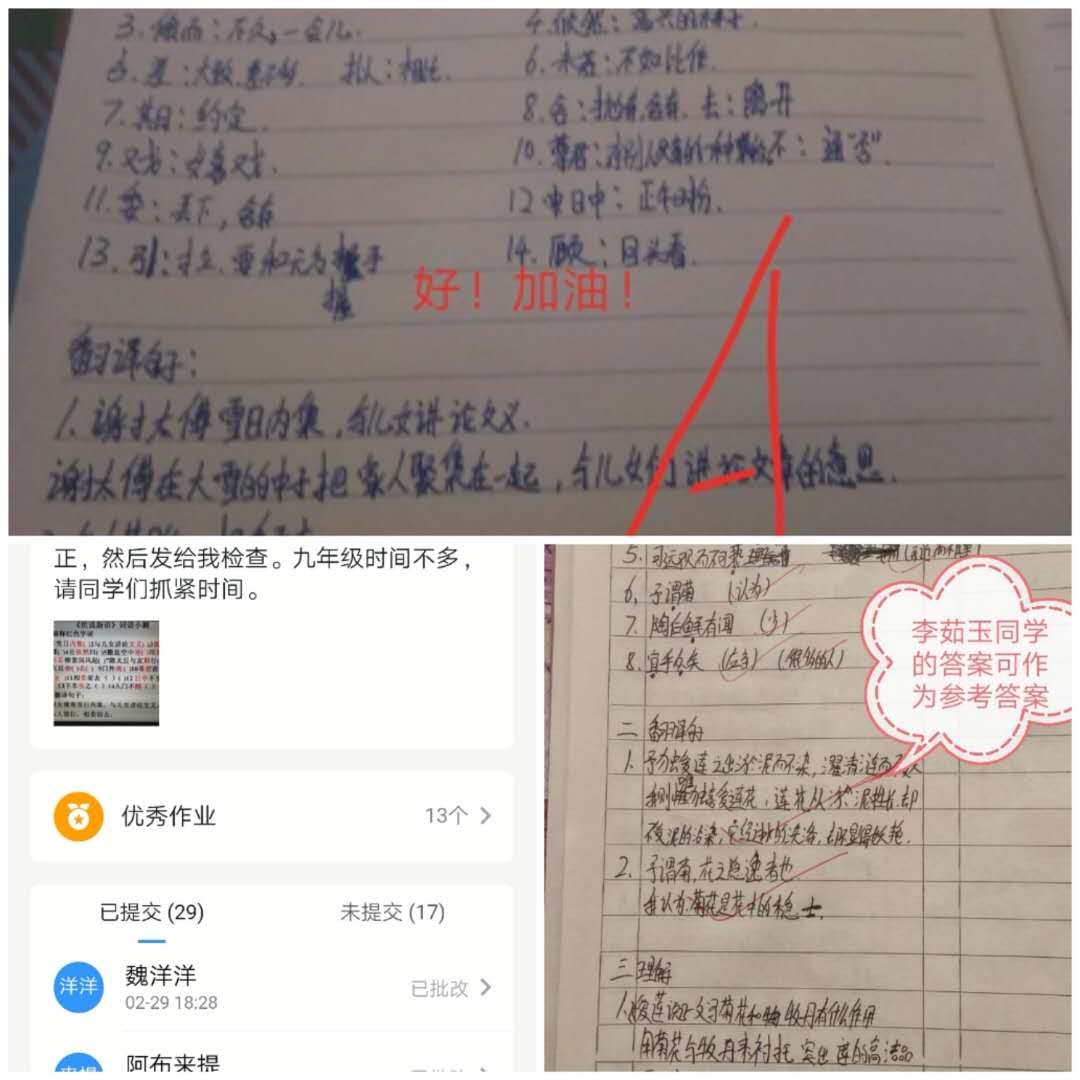 3. 俄而：不久，一会儿.
4. 欣然：高兴的样子
5. 差：大致，差不多 拟：相比.
6. 未若：不如比作.
7. 期日：约定.
8. 舍：抛弃，舍弃. 去：离开
9. 不：通“否”.
10. 尊君：对别人父亲的一种尊称.
11. 委：丢下，舍弃
12 日中：正午时分.
13. 引：拉. 要和元方握手
握
14. 顾：回头看.
好！加油！
翻译句子：
1. 谢太傅雪日内集，与儿女讲论文义.
谢太傅在大雪的中子把家人聚集在一起，与儿女们讲论文章的意思.
正，然后发给我检查。九年级时间不多，
请同学们抓紧时间。
优秀作业 13个
已提交 (29) 未提交 (17)
洋洋
魏洋洋
02-29 18:28
已批改
来提
阿布来提
5. 可远观而不可亵玩焉
6. 予谓菊 (认为)
7. 陶后鲜有闻 (少)
8. 宜乎众矣 (应当) (很多的人)
李茹玉同学
的答案可作
为参考答案
二 翻译句
1. 予独爱莲之出淤泥而不染，濯清涟而不妖
我则唯独喜爱莲花，莲花从淤泥里长出却
不受泥的沾染，它经过水的洗涤，却不显得妖艳.
2. 予谓菊，花之隐逸者也.
我认为菊花是花中的隐士.
三 理解
1. 爱莲说一文写菊花和牡丹有什么作用
用菊花与牡丹来衬托，突出莲的高洁品